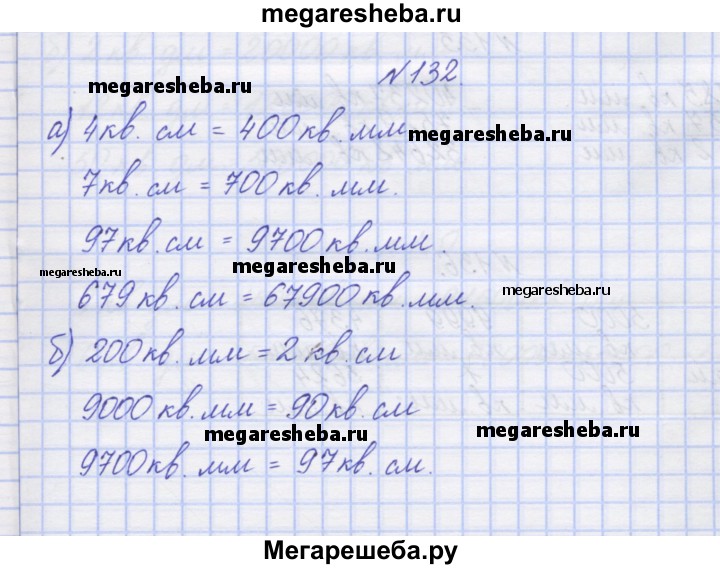 megaresheba.ru
№132.
megaresheba.ru
а) 4кв. см = 400кв. мм
megaresheba.ru
7кв. см = 700кв. мм.
97кв. см = 9700кв. мм.
megaresheba.ru
megaresheba.ru
679кв. см = 67900кв. мм.
megaresheba.ru
б) 200кв. мм = 2 кв. см
9000 кв. мм = 90кв. см
megaresheba.ru
megaresheba.ru
9700кв. мм = 97кв. см.
Мегарешеба.ру